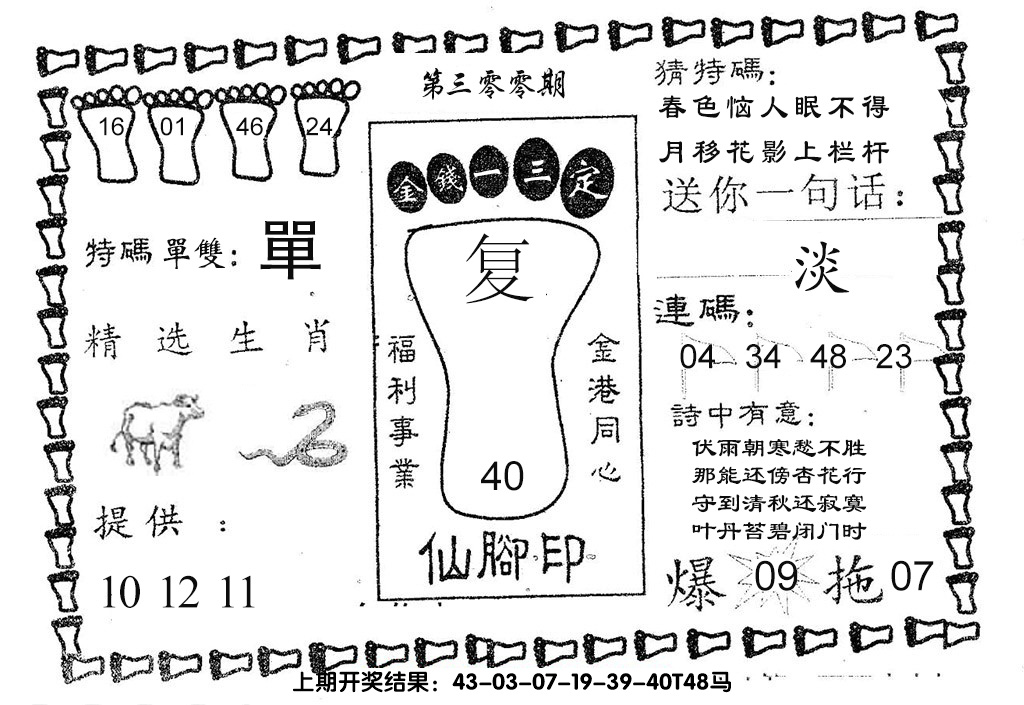 第三零零期
16 01 46 24
特碼單雙：單
精选生肖
提供：
10 12 11
金錢一三定
复
福利事業
金港同心
40
仙腳印
猜特碼：
春色恼人眠不得
月移花影上栏杆
送你一句话：
淡
連碼：
04 34 48 23
詩中有意：
伏雨朝寒愁不胜
那能还傍杏花行
守到清秋还寂寞
叶丹苔碧闭门时
爆 09 拖 07
上期开奖结果：43-03-07-19-39-40T48马